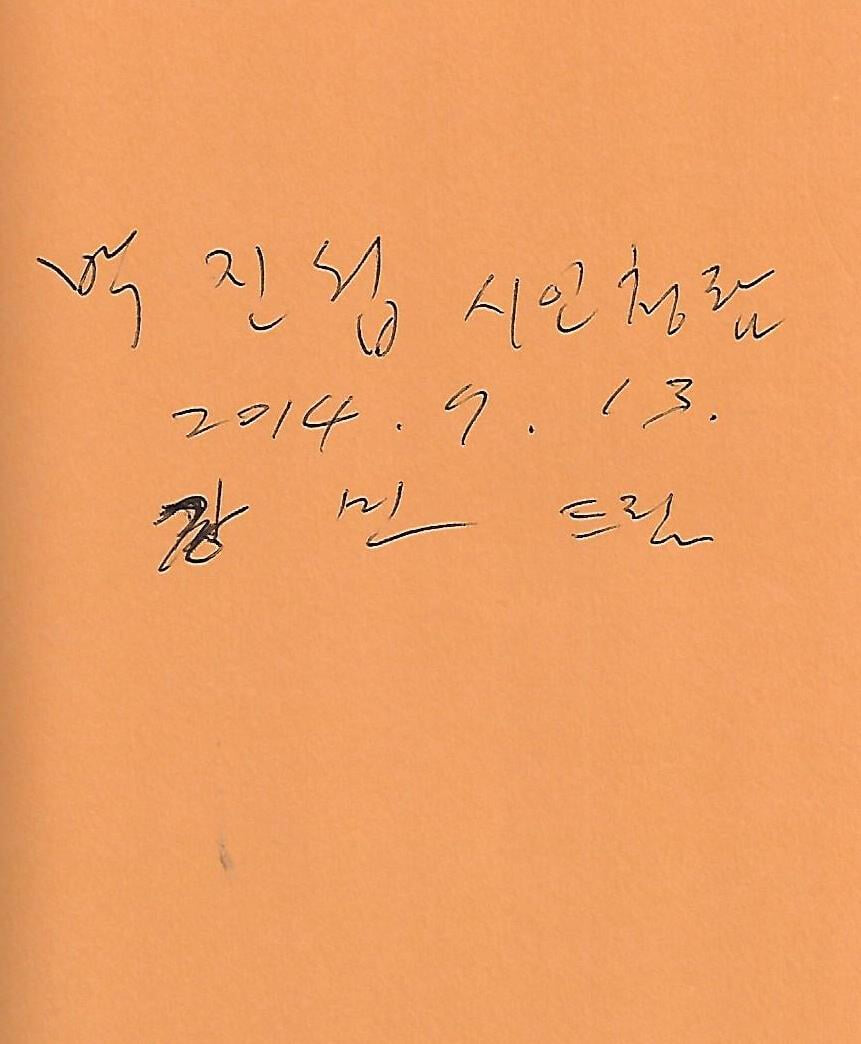 박진협 시인 청람
2014. 9. 13.
강 민 드림